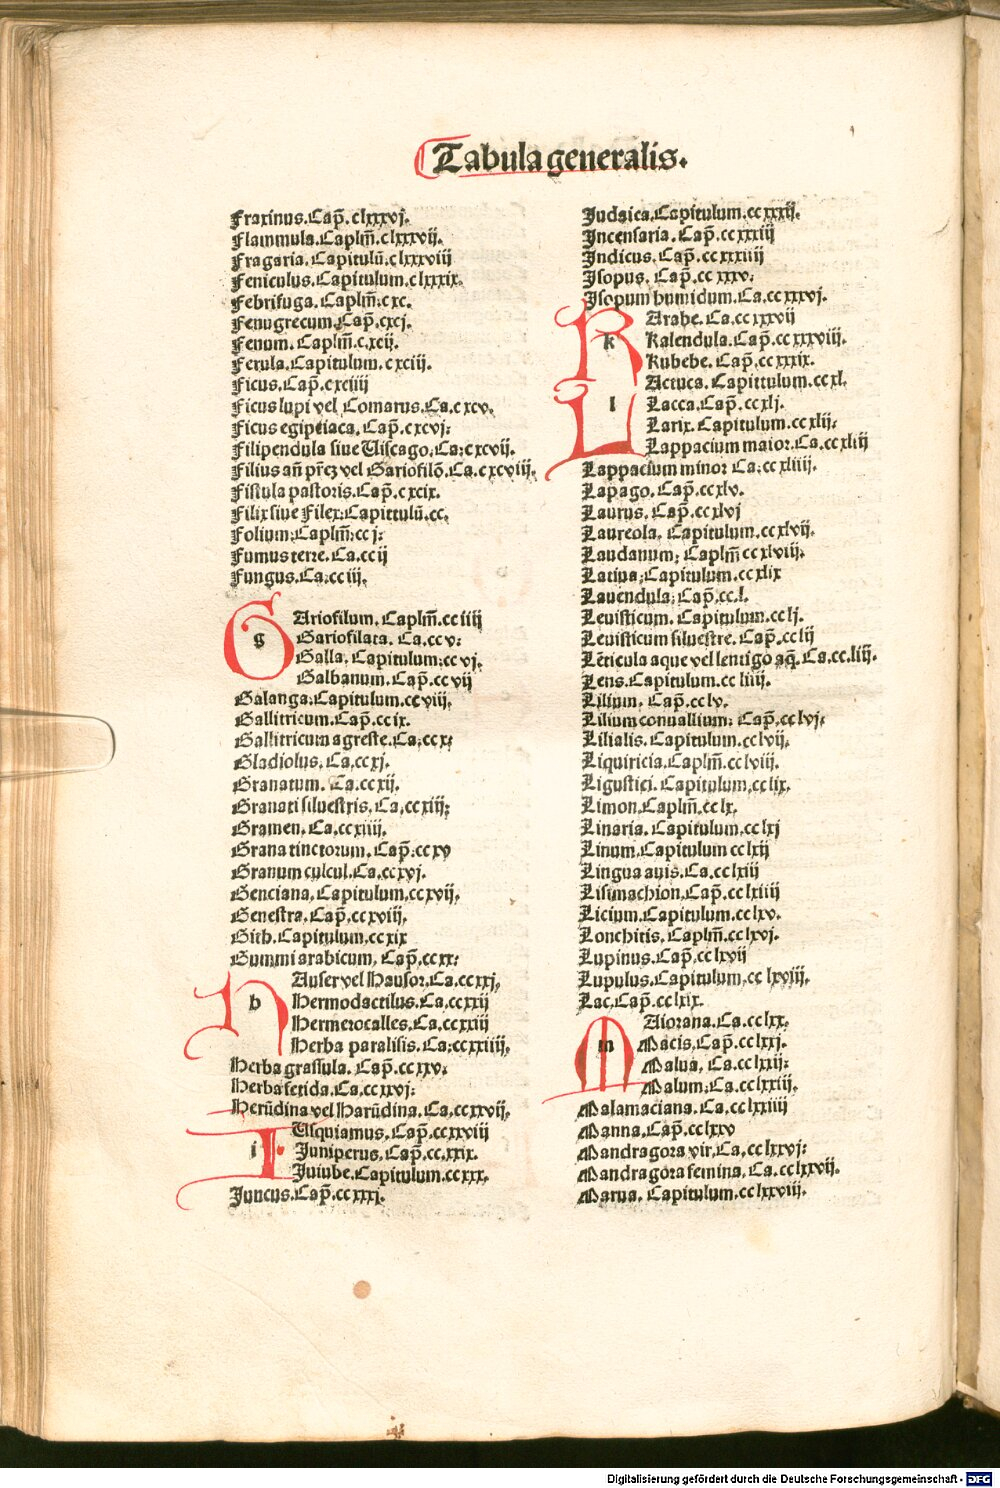 Tabula generalis.
Fraxinus. Cap̃. clxxxvj.
Flammula. Caplm̃. clxxxvij.
Fragaria. Capitulũ. clxxxviij
Feniculus. Capitulum. clxxxix.
Febrifuga. Caplm̃: cxc.
Fenugrecum. Cap̃. cxcj.
Fenum. Caplm̃. cxcij.
Ferula. Capitulum. cxciij.
Ficus. Cap̃. cxciiij
Ficus lupi vel Comarus. Ca. cxcv.
Ficus egiptiaca. Cap̃. cxcvj:
Filipendula siue Viscago. Ca: cxcvij.
Filius añ pr̃eʒ vel Gariofilõ. Ca. cxcviij.
Fistula pastoris. Cap̃. cxcix.
Filix siue Filex. Capittulũ. cc.
Folium: Caplm̃: cc j:
Fumus terre. Ca. cc ij
Fungus. Ca: cc iij.
g
GAriofilum. Caplm̃. cc iiij
Gariofilata. Ca. cc v:
Galla. Capitulum: cc vj.
Galbanum. Cap̃. cc vij
Galanga: Capitulum. cc viij.
Gallitricum. Cap̃. cc ix.
Gallitricum agreste. Ca. cc x:
Gladiolus. Ca. cc xj.
Granatum. Ca. cc xij.
Granati siluestris. Ca. cc xiij:
Gramen. Ca. cc xiiij.
Grana tinctorum. Cap̃: cc xv
Granum culcul. Ca. cc xvj.
Genciana. Capitulum. cc xvij.
Genestra. Cap̃. cc xviij.
Gith. Capitulum. cc xix
Gummi arabicum. Cap̃. cc xx:
h
HAuser vel Hausor. Ca. cc xxj.
Hermodactilus. Ca. cc xxij
Hermerocalles. Ca. cc xxiij
Herba paralisis. Ca: cc xxiiij.
Herba grassula. Cap̃. cc xxv:
Herba fetida. Ca. cc xxvj:
Herũdina vel Harũdina. Ca. cc xxvij.
i
IUsquiamus. Cap̃. cc xxviij
Juniperus. Cap̃. cc. xxix.
Juiube. Capitulum. cc xxx.
Juncus. Cap̃. cc xxxj.
Judaica. Capitulum. cc xxxij.
Incensaria. Cap̃. cc xxxiij
Indicus. Cap̃. cc xxxiiij
Isopus. Cap̃. cc xxxv.
Isopum humidum. Ca. cc xxxvj.
k
KArabe. Ca. cc xxxvij
Kalendula. Cap̃. cc xxxviij.
Kubebe. Cap̃. cc xxxix.
l
LActuca. Capittulum. cc xl.
Lacca. Cap̃. cc xlj.
Larix. Capitulum. cc xlij:
Lappacium maior. Ca. cc xliij
Lappacium minor Ca: cc xliiij.
Lapago. Cap̃. cc xlv.
Laurus. Cap̃. cc xlvj
Laureola. Capitulum. cc xlvij.
Laudanum; Caplm̃ cc xlviij.
Latiua: Capitulum. cc xlix
Lauendula: Cap̃. cc. l.
Leuisticum. Capitulum. cc lj.
Leuisticum siluestre. Cap̃. cc lij
Lẽticula aque vel lentigo aq̃. Ca. cc. liij.
Lens. Capitulum. cc liiij.
Lilium. Cap̃. cc lv.
Lilium conuallium: Cap̃. cc lvj:
Lilialis. Capitulum. cc lvij.
Liquiricia. Caplm̃. cc lviij.
Ligustici. Capitulum. cc lix.
Limon. Caplm̃. cc lx.
Linaria. Capitulum. cc lxj
Linum. Capitulum cc lxij
Lingua auis. Ca. cc lxiij
Lisimachion. Cap̃. cc lxiiij
Licium. Capitulum. cc lxv.
Lonchitis. Caplm̃. cc lxvj.
Lupinus. Cap̃. cc lxvij
Lupulus. Capitulum. cc lxviij.
Lac. Cap̃. cc lxix.
m
MAiorana. Ca. cc lxx.
Macis. Cap̃. cc lxxj.
Malua. Ca. cc lxxij:
Malum: Ca. cc lxxiij.
Malamaciana. Ca. cc lxxiiij
Manna. Cap̃. cc lxxv
Mandragora vir. Ca. cc lxxvj:
Mandragora femina. Ca. cc lxxvij.
Marua. Capitulum. cc lxxviij.
Digitalisierung gefördert durch die Deutsche Forschungsgemeinschaft - DFG